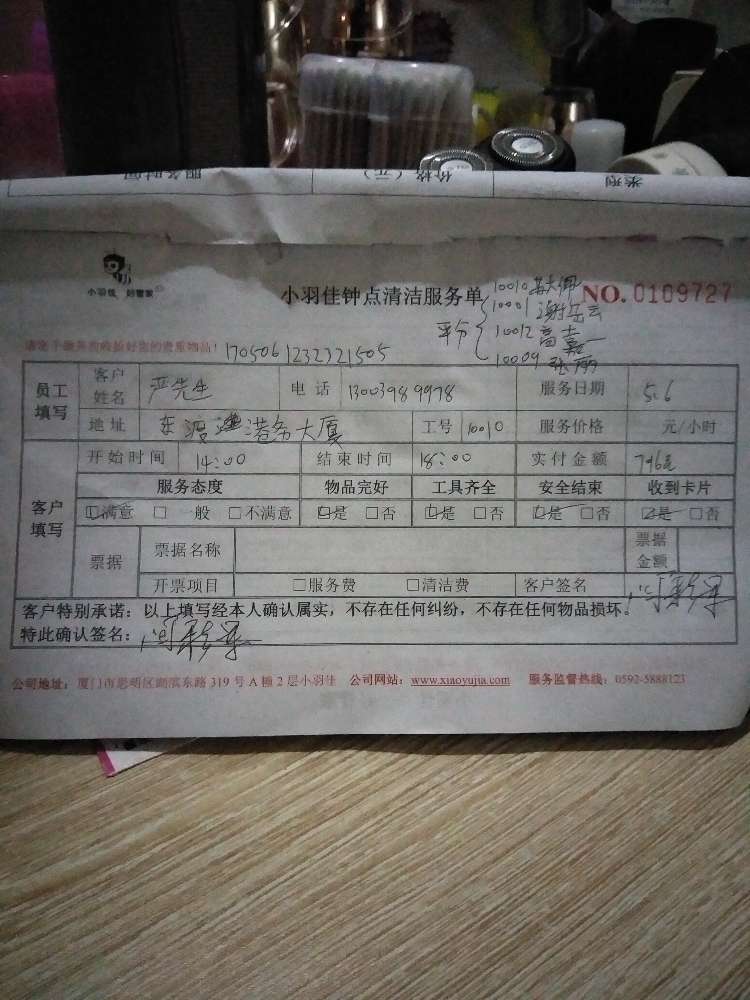 服务时间 价格（元） 类型
小羽佳 好管家
小羽佳钟点清洁服务单 NO. 0109727
10010
10001 谢岳云
平分 10012
10009 张丽
170506123232 1505
员工填写 客户姓名 严先生 电话 13003989978 服务日期 5.6
地址 东渡港务大厦 工号 10010 服务价格 元/小时
客户填写 开始时间 14:00 结束时间 18:00 实付金额 746元
服务态度 物品完好 工具齐全 安全结束 收到卡片
☑满意 □一般 □不满意 ☑是 □否 ☑是 □否 ☑是 □否 ☑是 □否
票据 票据名称 票据金额
开票项目 □服务费 □清洁费 客户签名
客户特别承诺：以上填写经本人确认属实，不存在任何纠纷，不存在任何物品损坏。
特此确认签名：
公司地址：厦门市思明区湖滨东路 319 号 A 幢 2 层小羽佳 公司网站：www.xiaoyujia.com 服务监督热线：0592-5888123